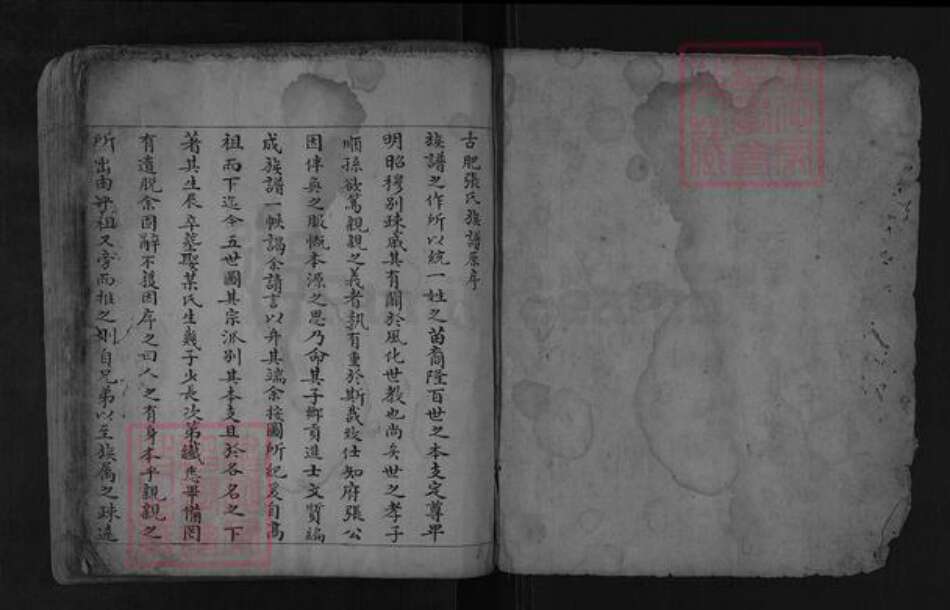 古肥張氏族譜原序
族譜之作所以統一姓之苗裔隆百世之本支定尊卑
明昭穆別疎戚其有關於風化世教也尚矣世之孝子
順孫欲篤親親之義者孰有重於斯哉致仕知府張公
因伴奐之暇慨本源之思乃命其子鄉貢進士文質編
成族譜一帙謁余請言以弁其端余按圖所紀爰自高
祖而下迄今五世圖其宗派別其本支且於各名之下
著其生辰卒葬娶某氏生幾子少長次第纖悉畢備罔
有遺脫余固辭不獲因序之曰人之有身本乎親親之
所出由乎祖又旁而推之則自兄弟以至族屬之疎遠